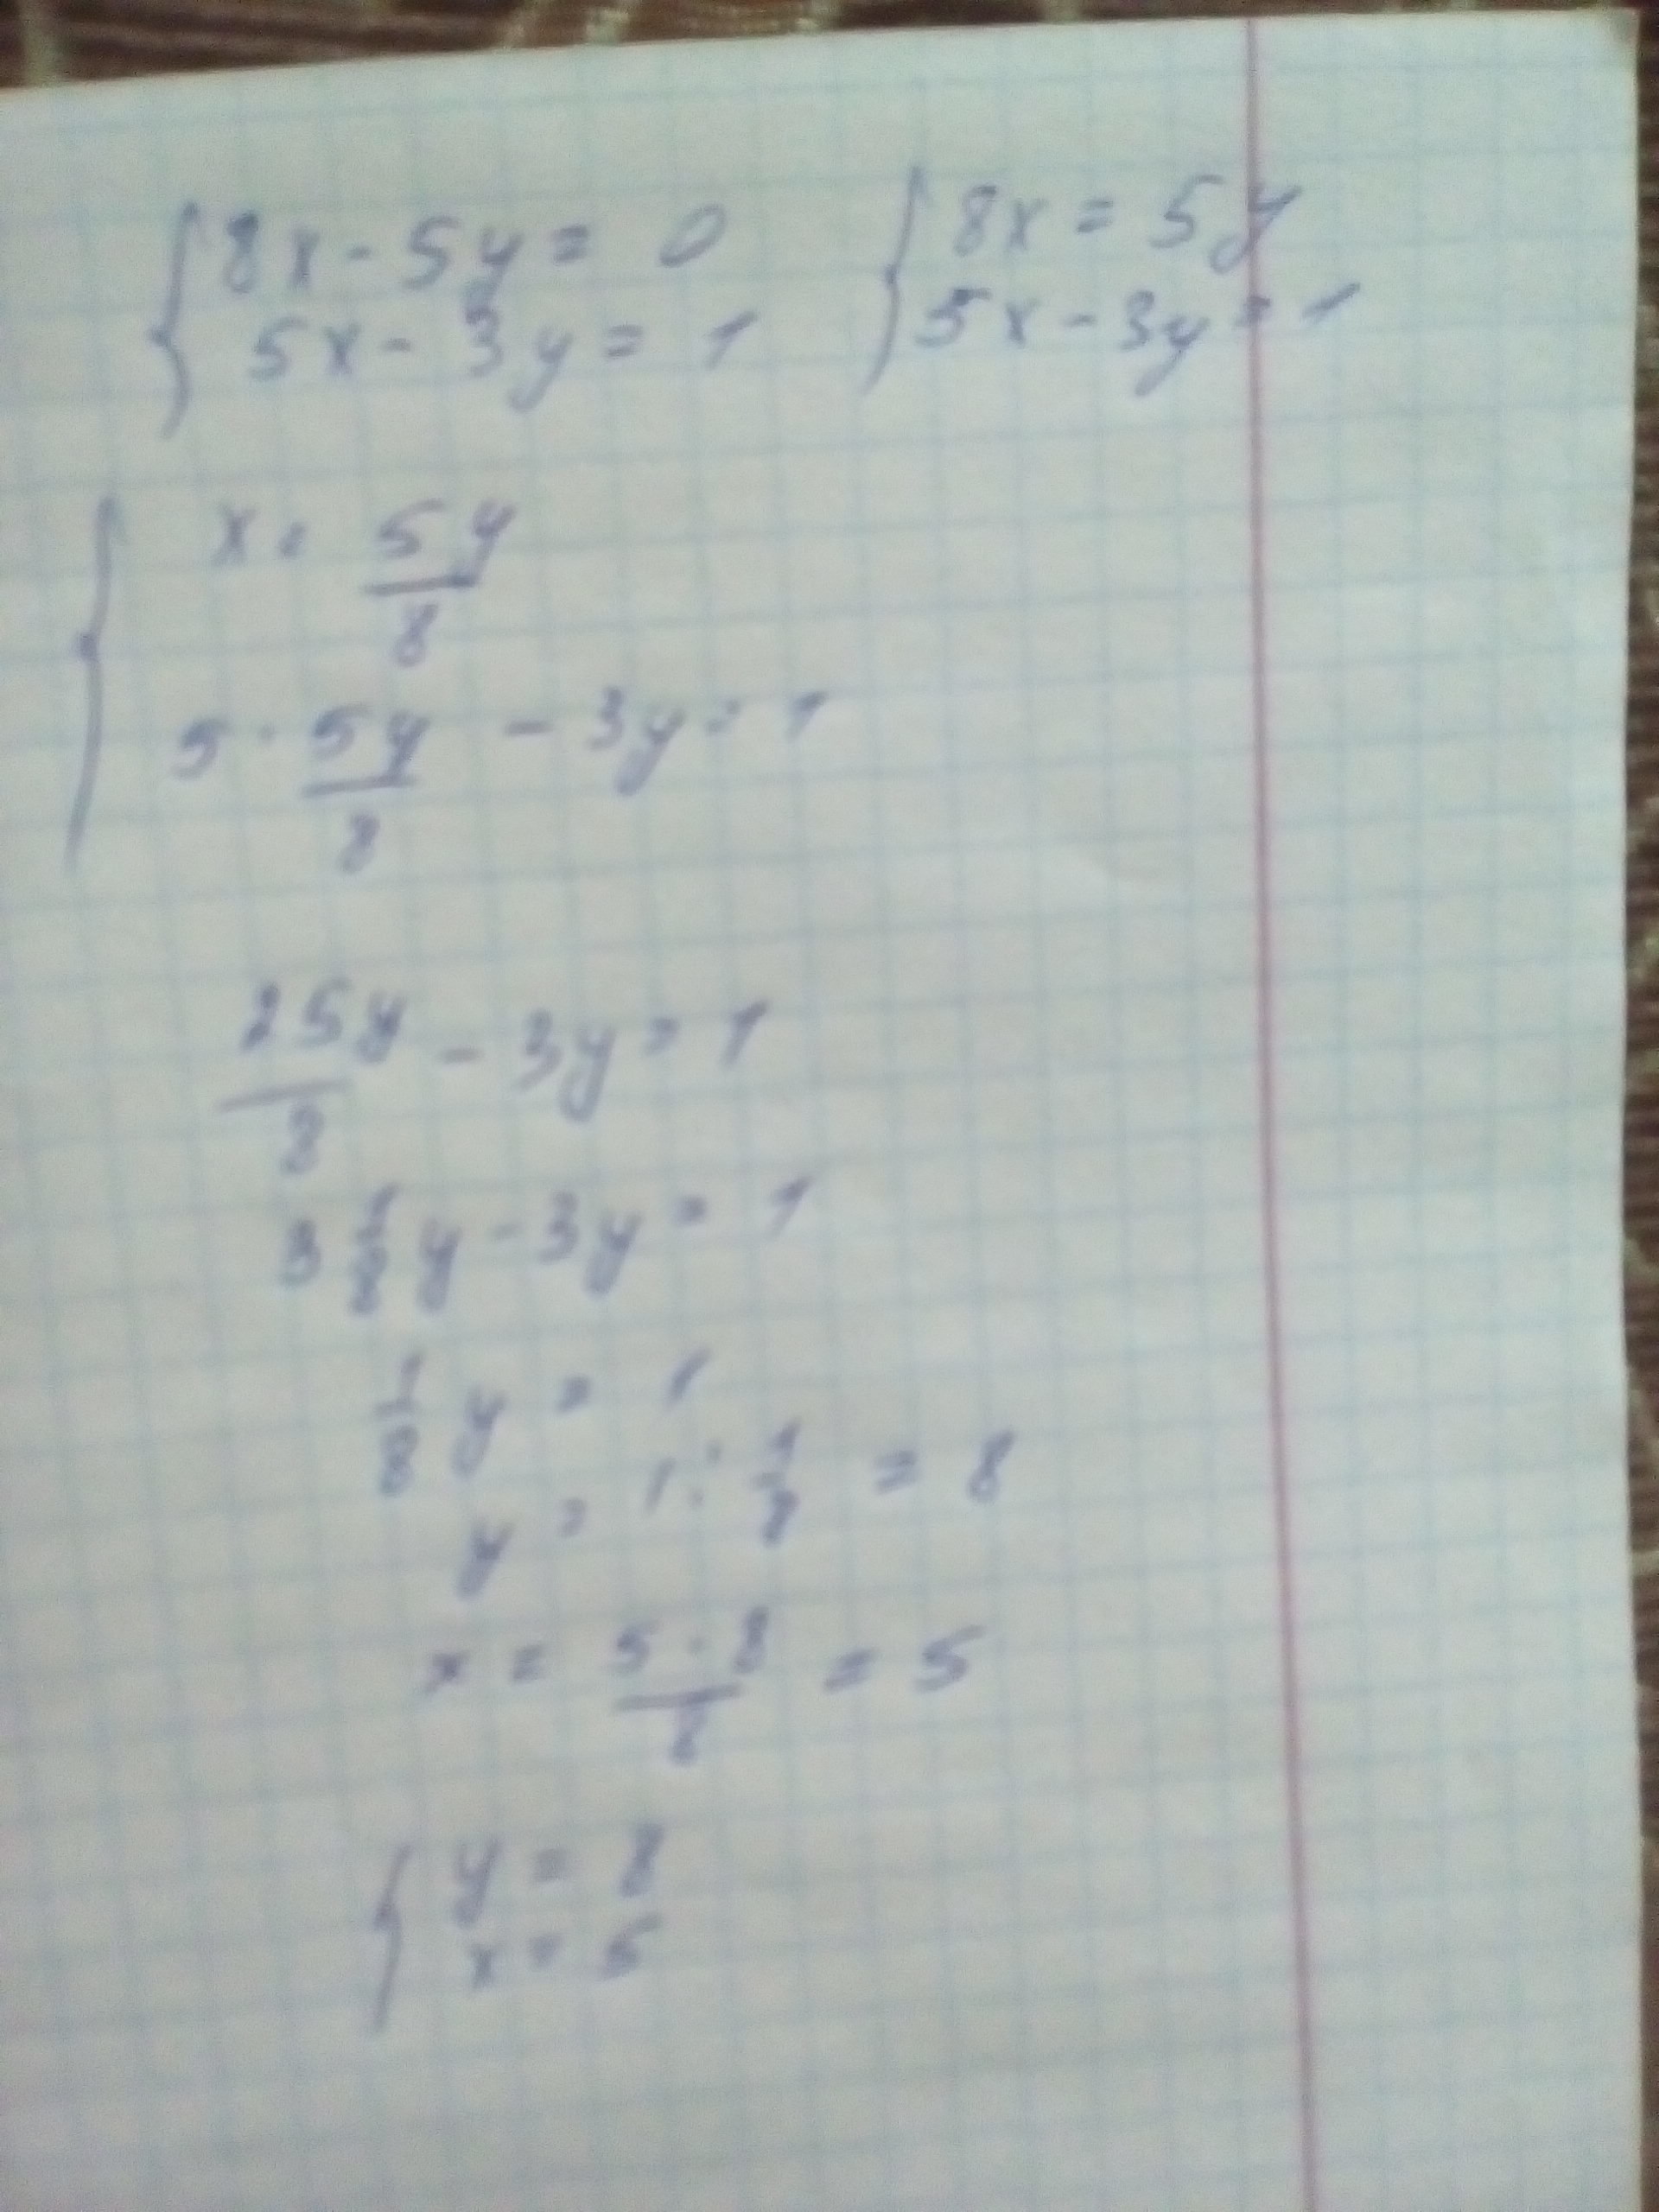 {8x - 5y = 0 {8x = 5y
5x - 3y = 1 5x - 3y = 1
{x = 5y/8
5 · 5y/8 - 3y = 1
25y/8 - 3y = 1
3 1/8 y - 3y = 1
1/8 y = 1
y = 1 : 1/8 = 8
x = 5 · 8/8 = 5
{y = 8
x = 5